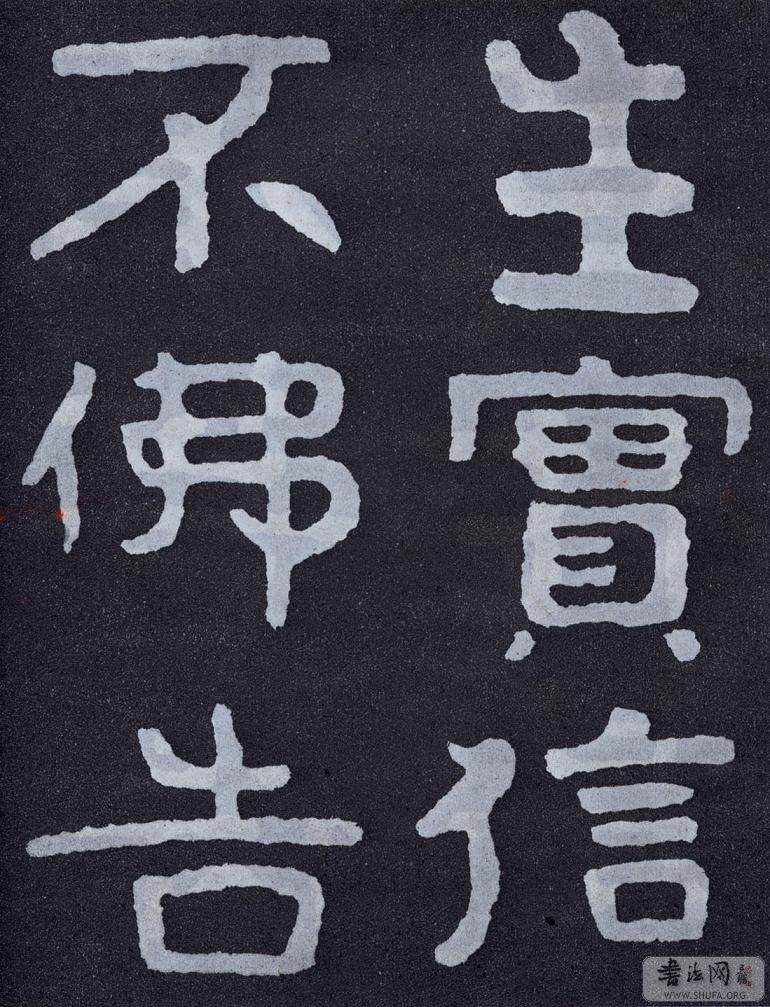 生實信
不佛告
書法网
WWW.SHUFA.ORG